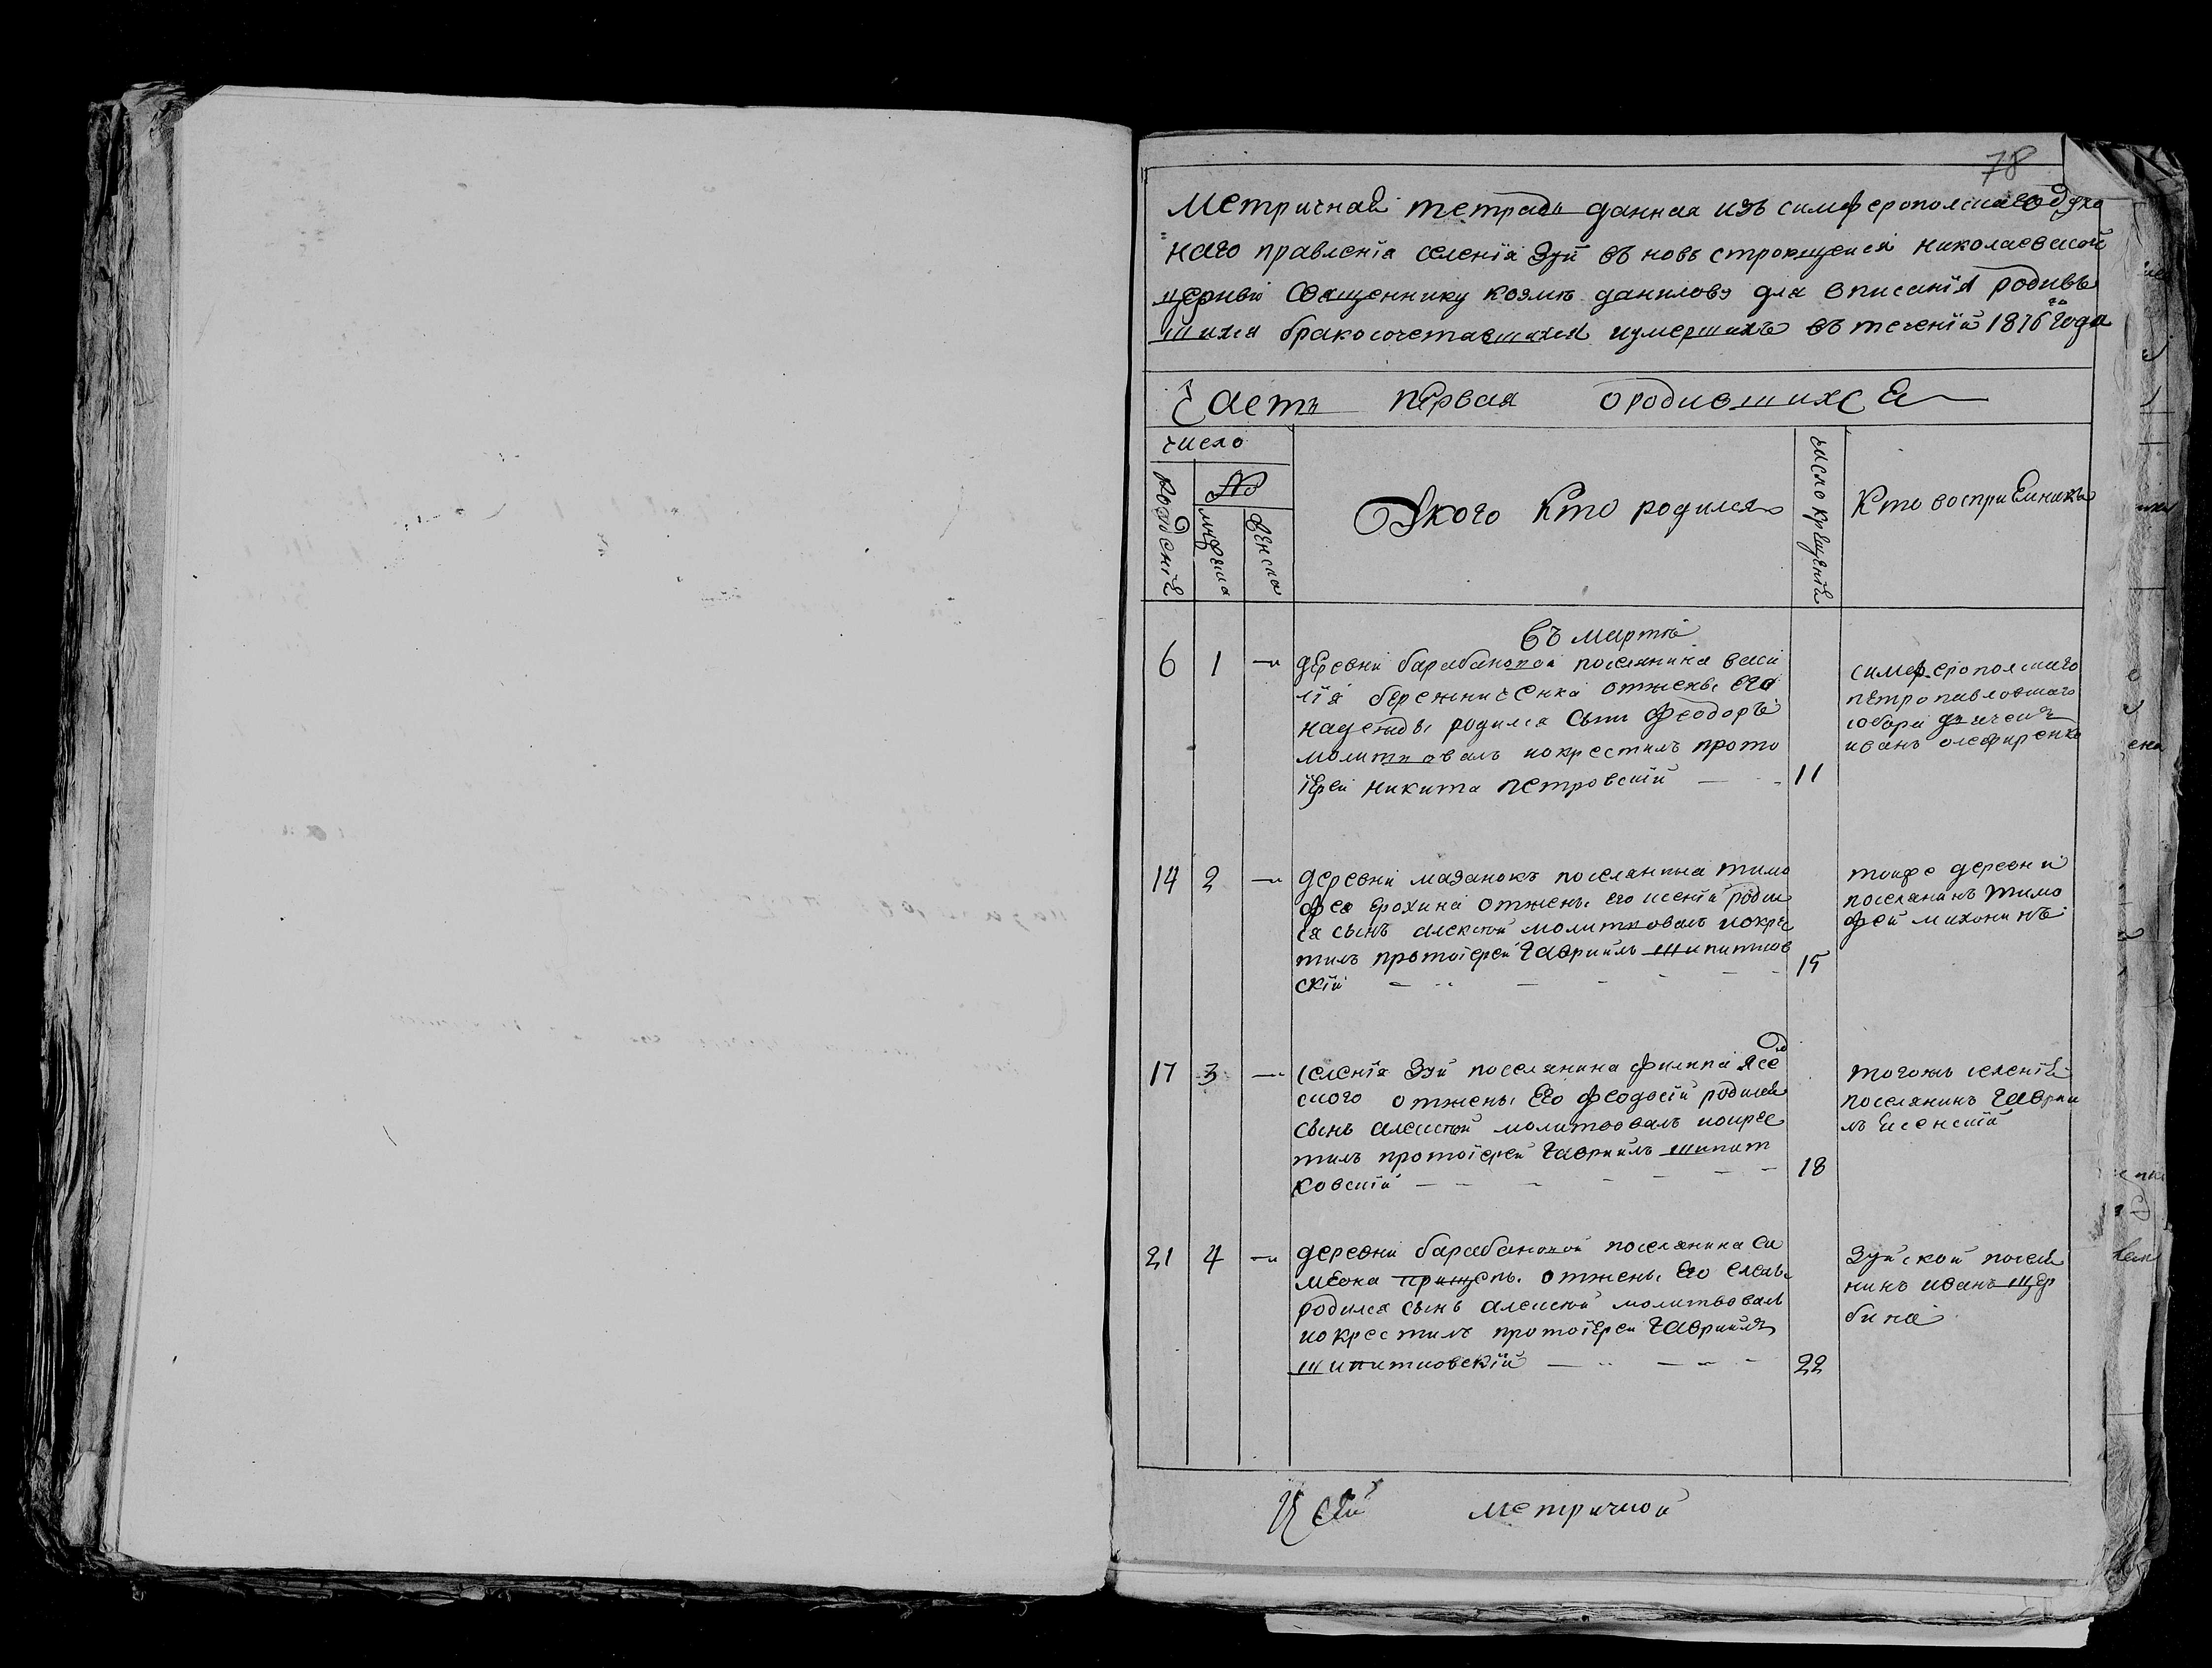 78
Метричнаѧ тетрадь данная изъ симферополскаго духо
=наго правленїя селенїя Зуй въ новь строющейся николаевской
церквѣ священнику козмѣ данилову для вписанїя родивъ
шихся бракосочетавшихся иумершихъ въ теченїй 1816го года
Часть первая ородившихся
число
рождениє
№
мужеска
женска
Укого Кто родился
число крещениѧ
Кто восприемникъ
въ мартѣ
6 1 — деревни барабановой поселянина васи
лїя бережниченка отжены его
надежды родился сынъ феодоръ
молитвовалъ иокрестилъ прото
їерей никита петровский — 11
симферополскаго
петропавловскаго
собора дьячекъ
иванъ олефиренко
14 2 — деревни мазанокъ поселянина тимо
фея ерохина отжены его ксенїй родил
ся сынъ алексѣй молитвовалъ иокрес
тилъ протоїерей гавриилъ шипитков
скїй — 15
тоиже деревни
поселянинъ тимо
фей михонинъ
17 3 — селенїя Зуй поселянина филипа ясе
ского отжены его феодосїи родился
сынъ алексѣй молитвовалъ иокрес
тилъ протоїерей гавриилъ шипит
ковский — 18
тогожъ селенїя
поселянинъ гаврии
лъ Есенский
21 4 — деревни барабановой поселянина си
меона прищепы отжены его елены
родился сынъ алексѣй молитвовалъ
иокрестилъ протоїерей гавриилъ
шипитковскїй — 22
Зуйской поселя
нинъ иванъ щер
бина
Ксей метричной